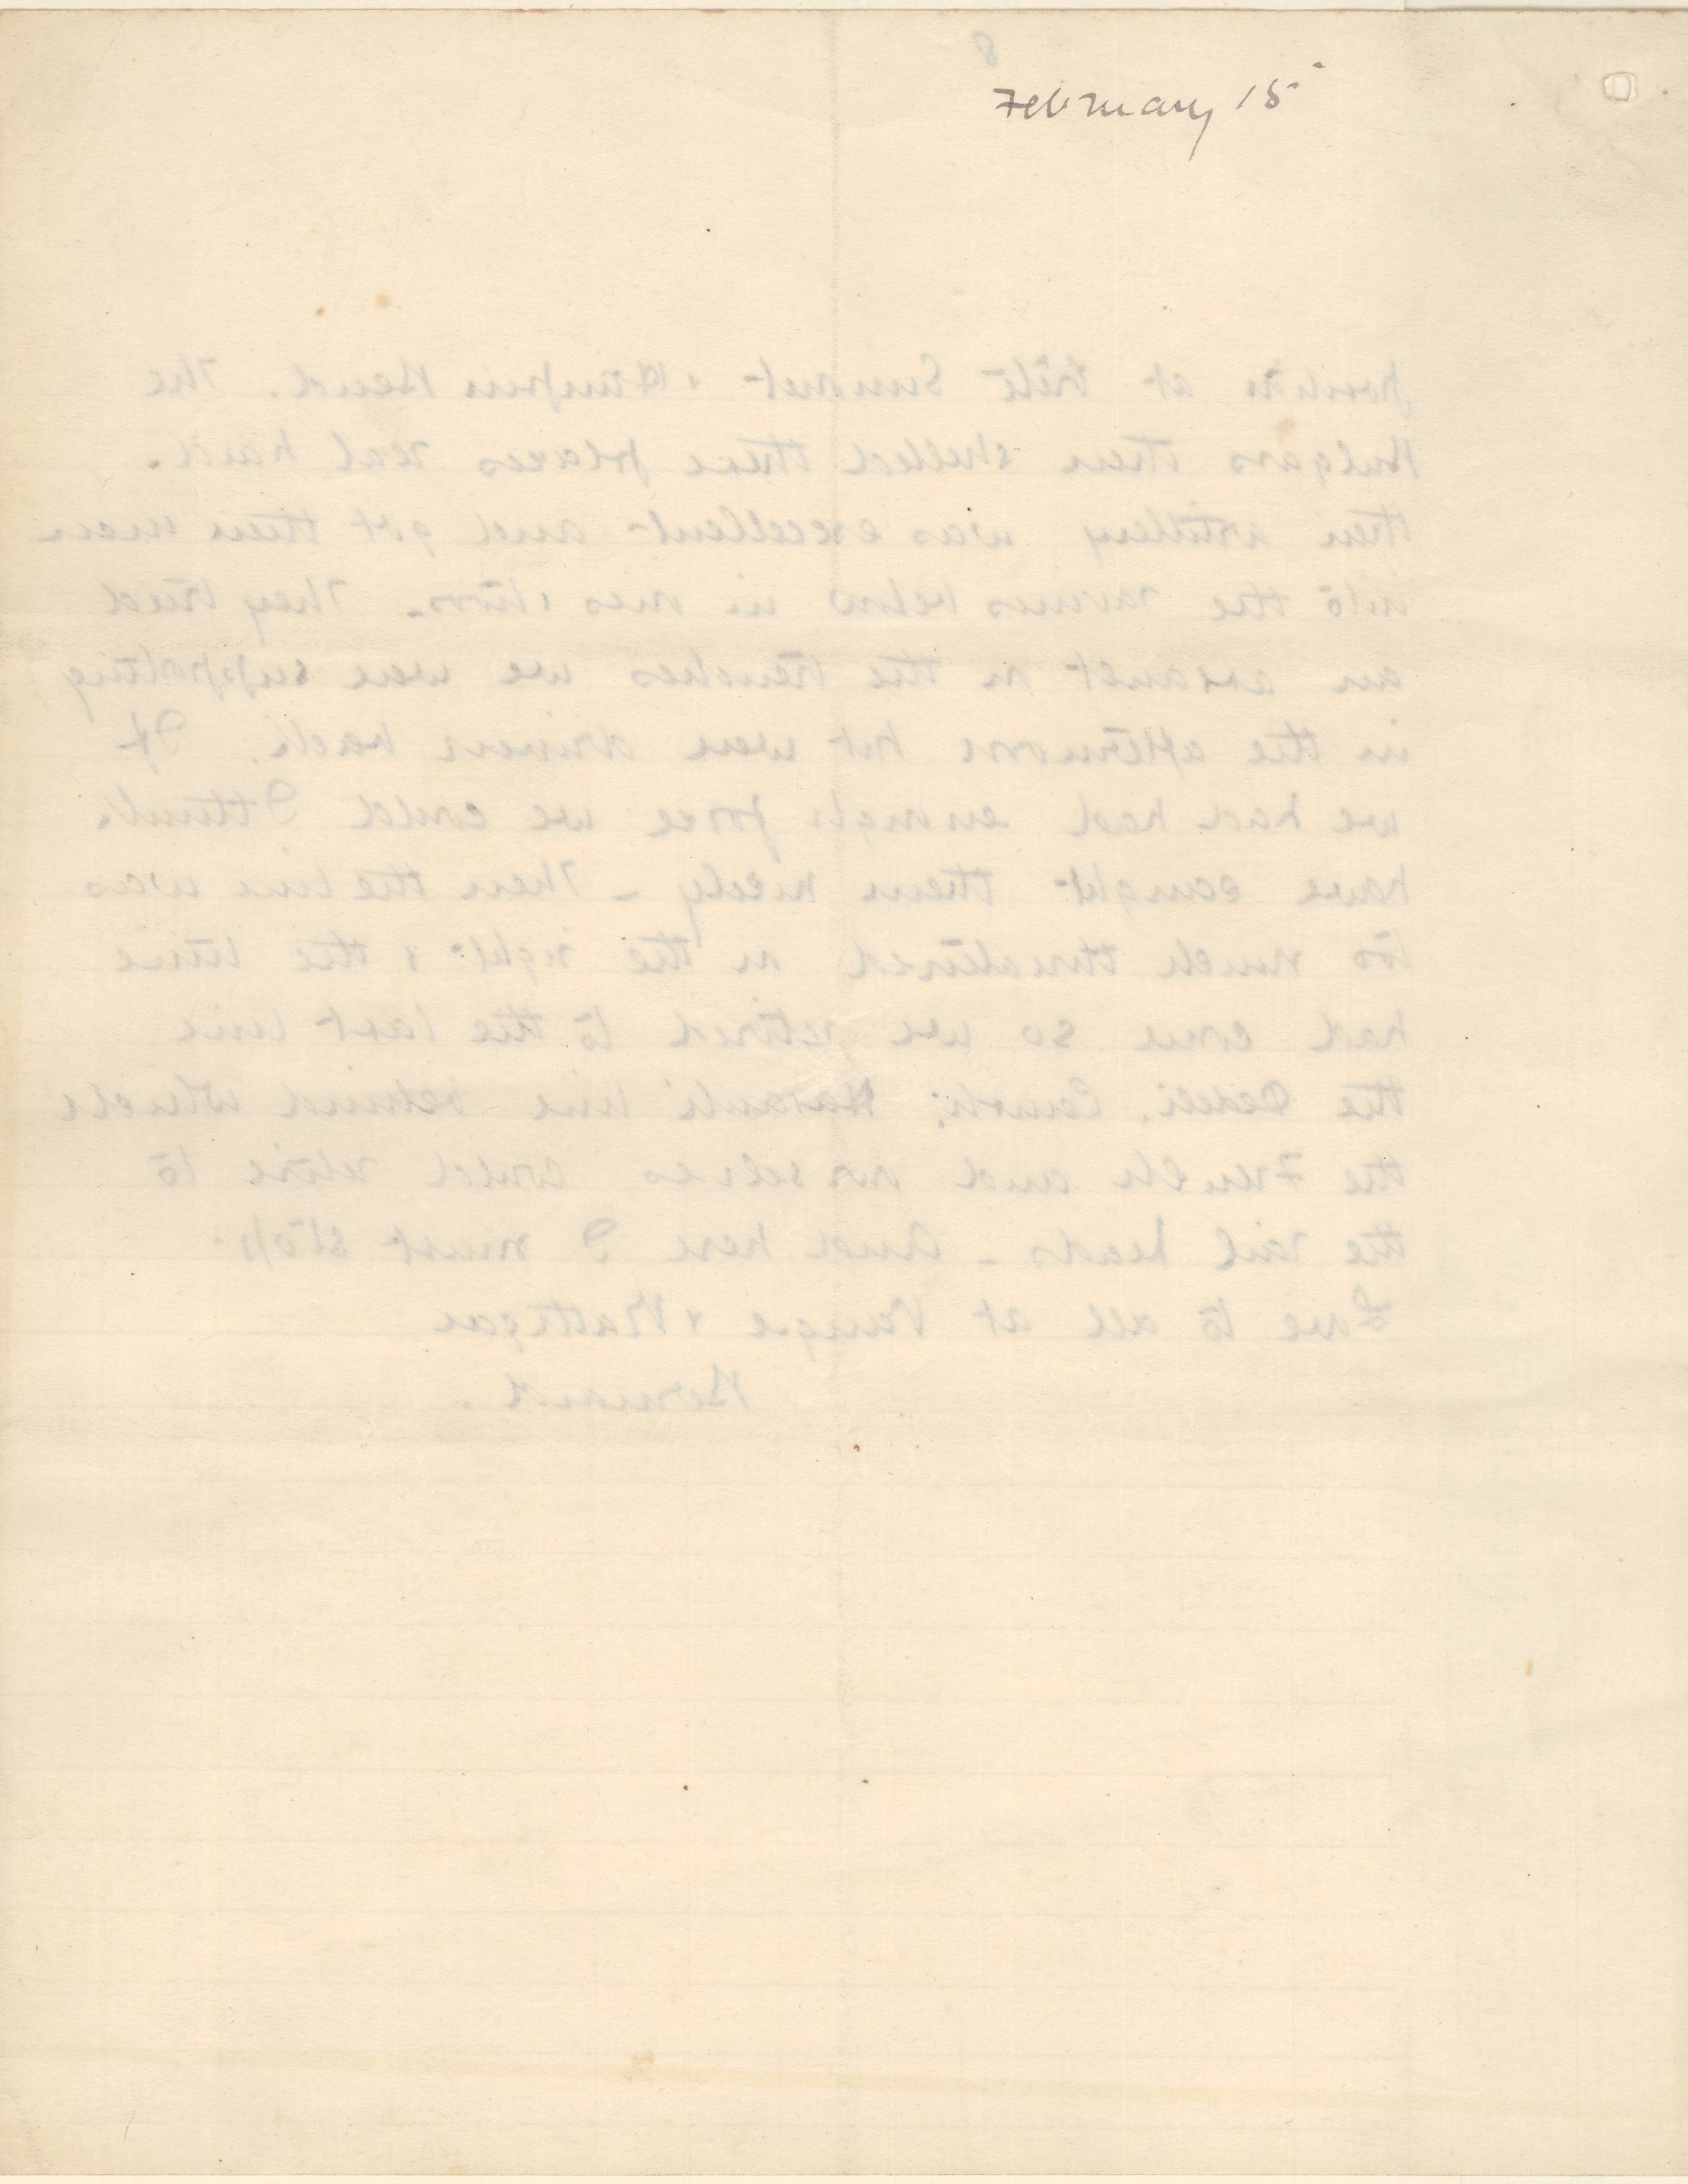 February 15
8
at Kilo Summit & Hairpin Bend. The
Bulgars then shelled these places real hard.
their artillery was excellent and got their men
into the ravines below in ones & twos. They tried
an assault on the trenches we were supporting
in the afternoon but were driven back. If
we had had enough force we could I think.
have caught them nicely - Then the line was
too much threatened on the right & the time
had come so we retired to the last line
the Dedeli. line behind which
the French and ourselves could retire to
the rail heads - And here I must stop.
Love to all at & Rattigan
Bernard.